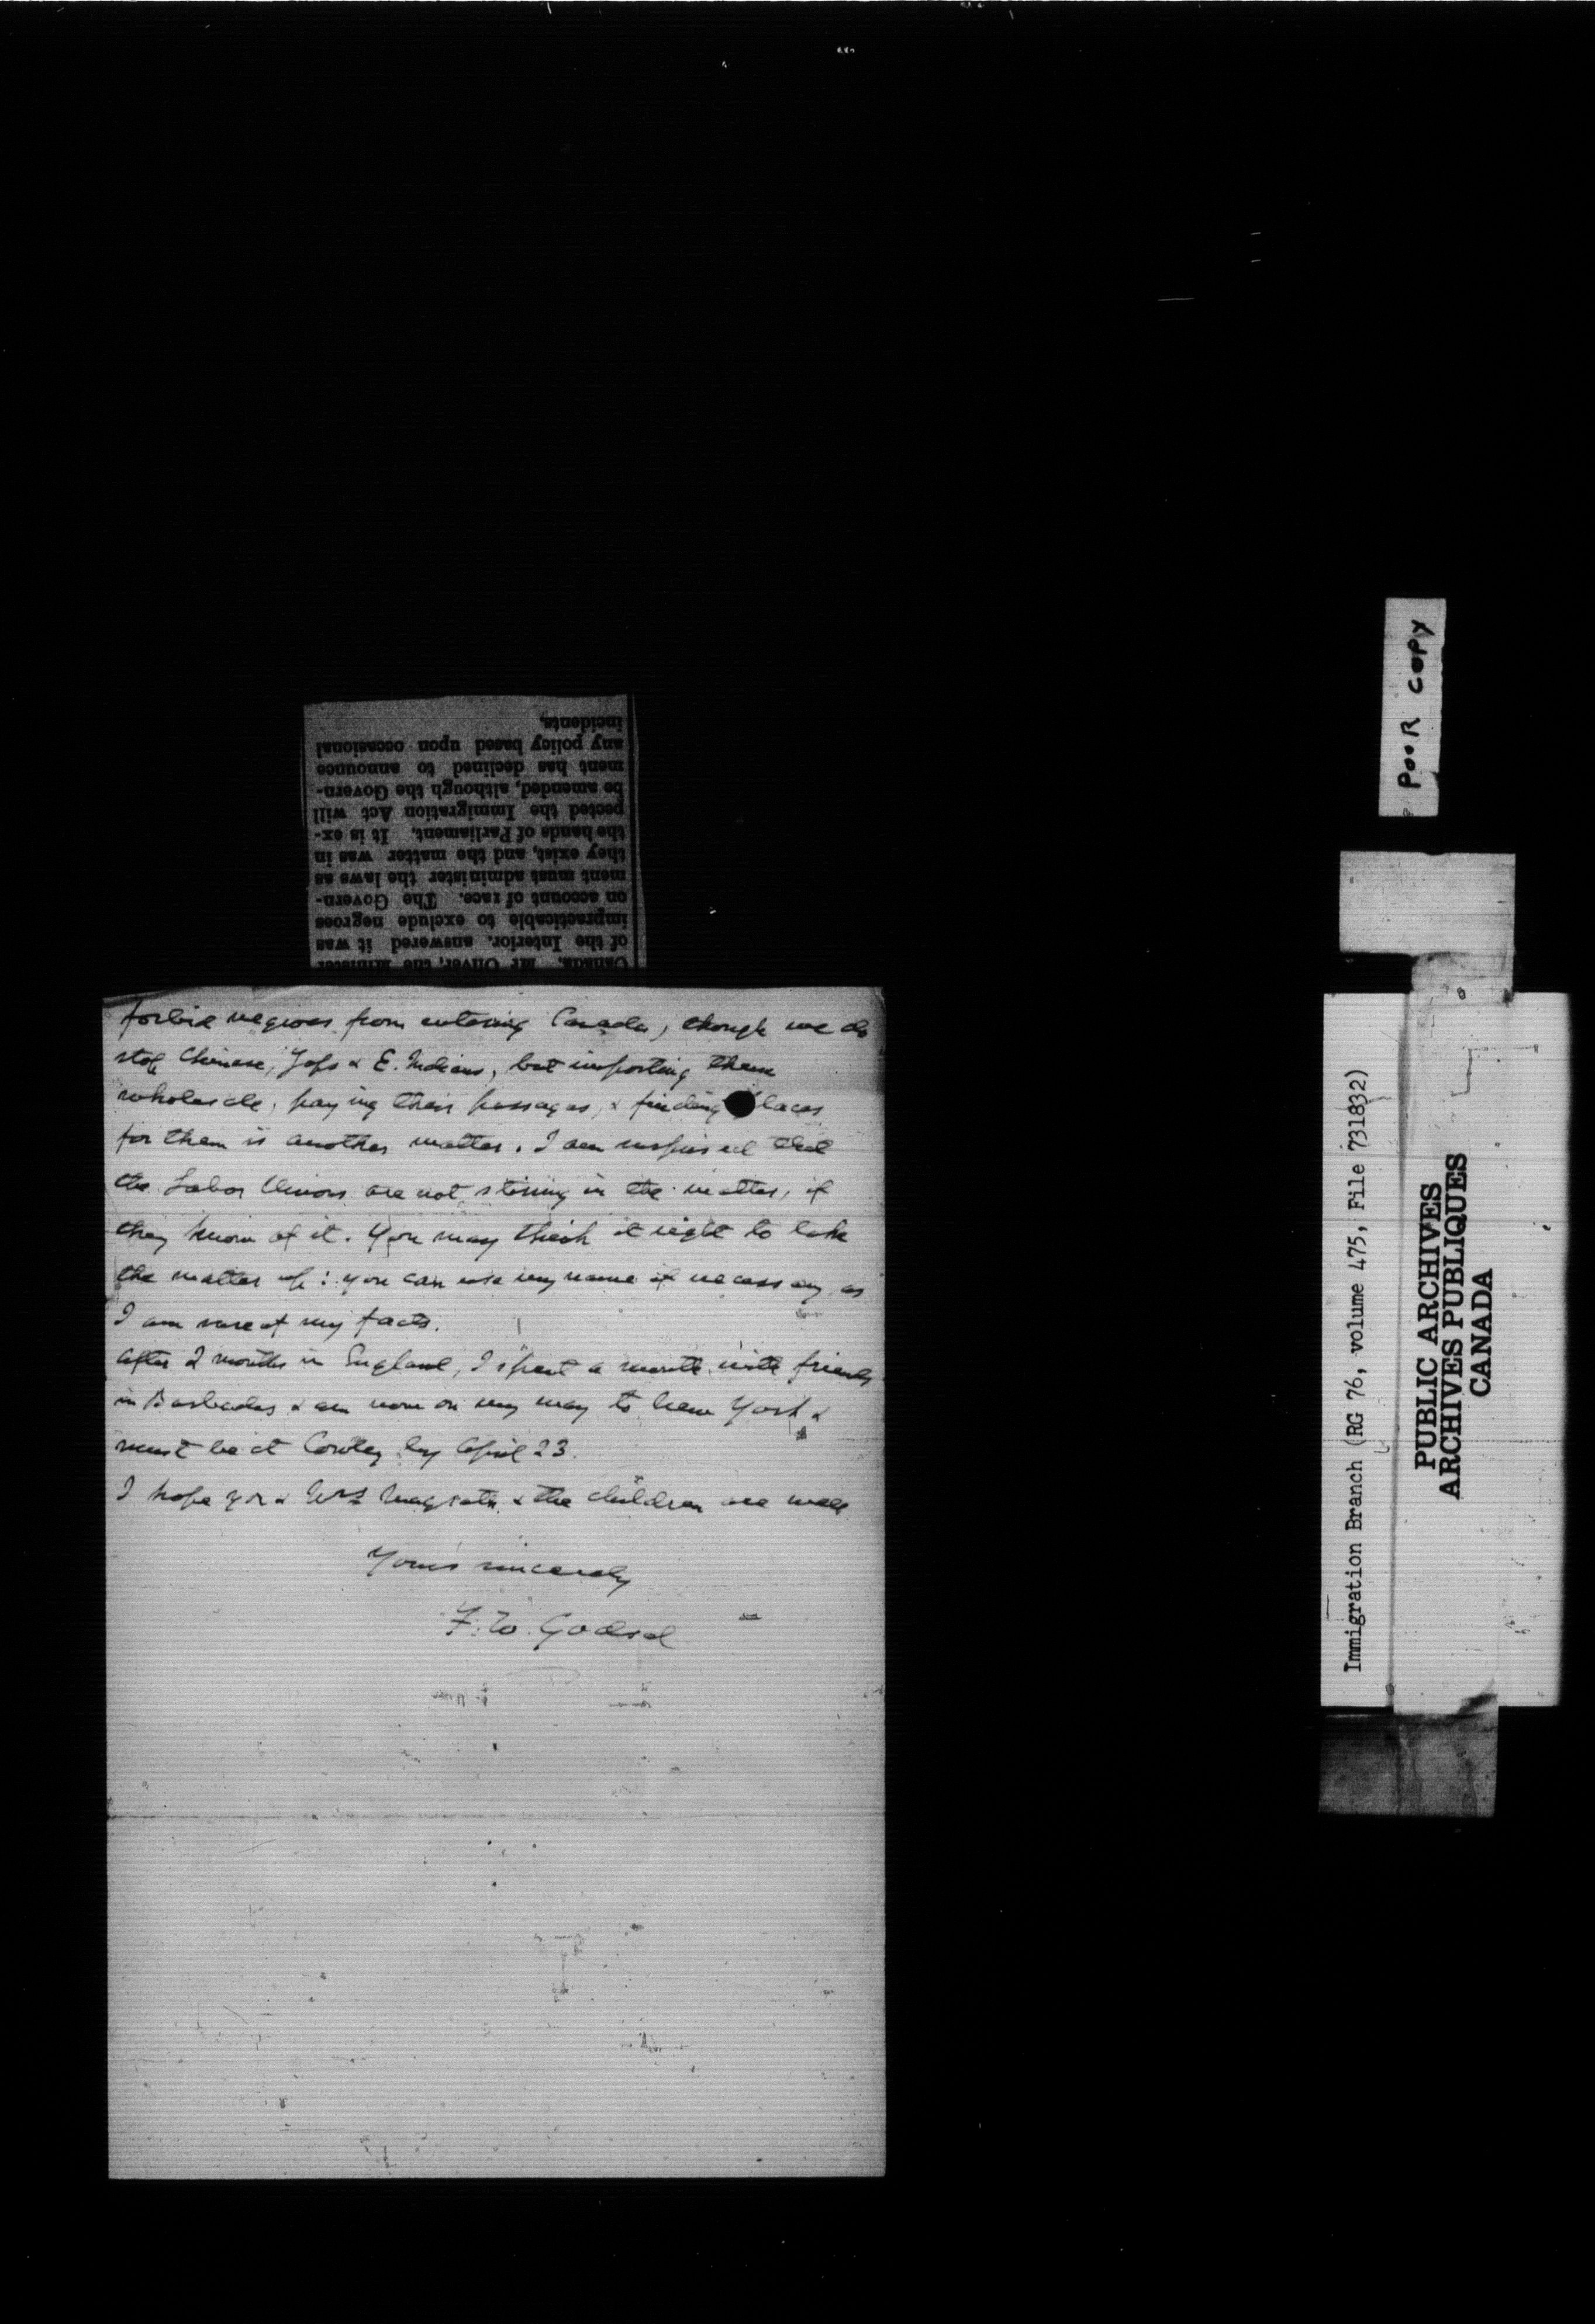 Canada. Mr Oliver, the Minister
of the Interior, answered it was
impracticable to exclude negroes
on account of race. The Govern-
ment must administer the laws as
they exist, and the matter was in
the hands of Parliament. It is ex-
pected the Immigration Act will
be amended, although the Govern-
ment has declined to announce
any policy based upon occasional
incidents.
forbid negroes from entering Canada, though we do
stop Chinese, Japs & E. Indians, but importing them
wholesale, paying their passages, & finding places
for them is another matter. I am surprised that
the Labor Unions are not stirring in the matter, if
they know of it. You may think it right to take
the matter up: you can use my name if necessary as
I am sure of my facts.
After 2 months in England, I spent a month with friends
in Barbados & am now on my way to New York &
must be at Cowley by April 23.
I hope you & Mrs Magrath & the children are well
Yours sincerely
F. W. Godsal
POOR COPY
Immigration Branch (RG 76, volume 475, File 731832)
PUBLIC ARCHIVES
ARCHIVES PUBLIQUES
CANADA